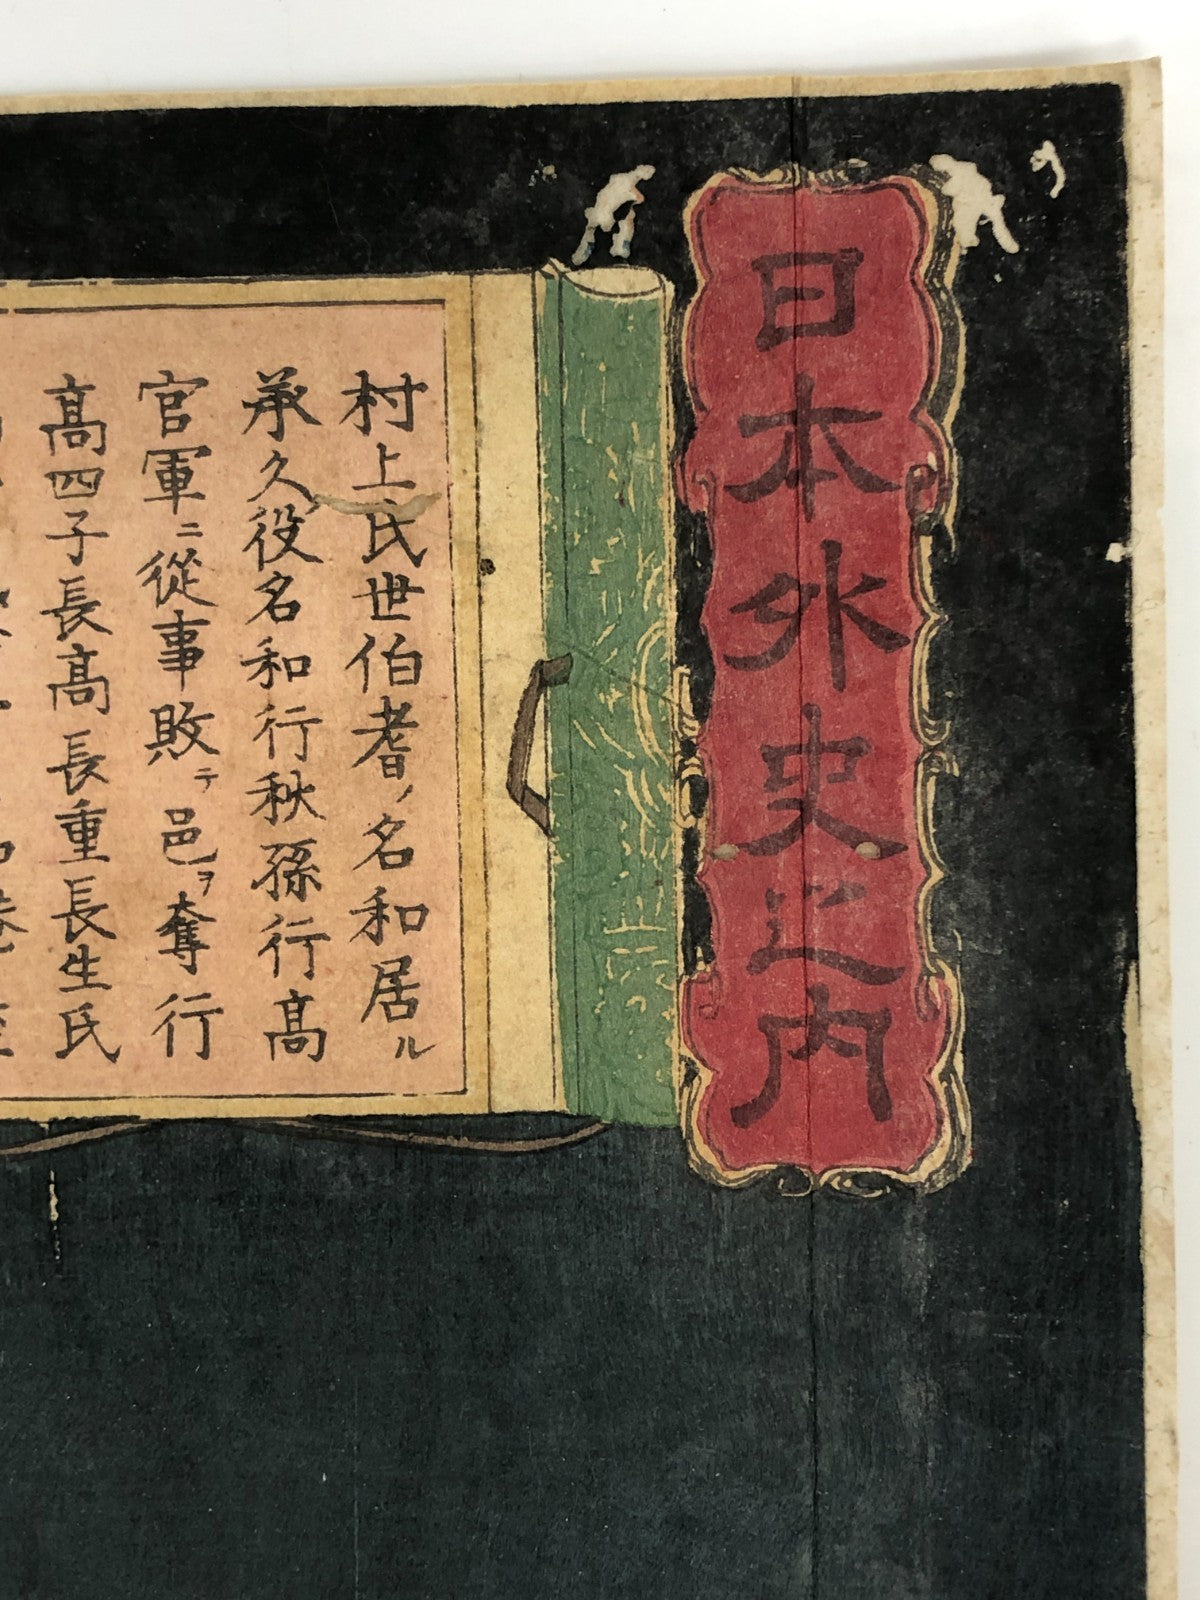 日本外史之内
村上氏世伯耆ノ名和居ル
承久役名和行秋孫行髙
官軍ニ從事敗テ邑ヲ奪行
髙四子長髙長重長生氏